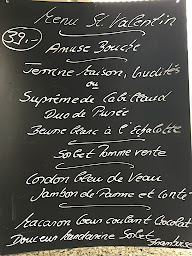 Menu St. Valentin
39.-
Amuse Bouche
Terrine Maison, Crudités
ou
Suprème de Cabillaud
Duo de Purée
Beurre Blanc à l'Echalotte
Sorbet Pomme verte
Cordon Bleu de Veau
Jambon de Parme et Comté
Macaron Cœur coulant Chocolat
Douceur Mandarine Sorbet
Framboise